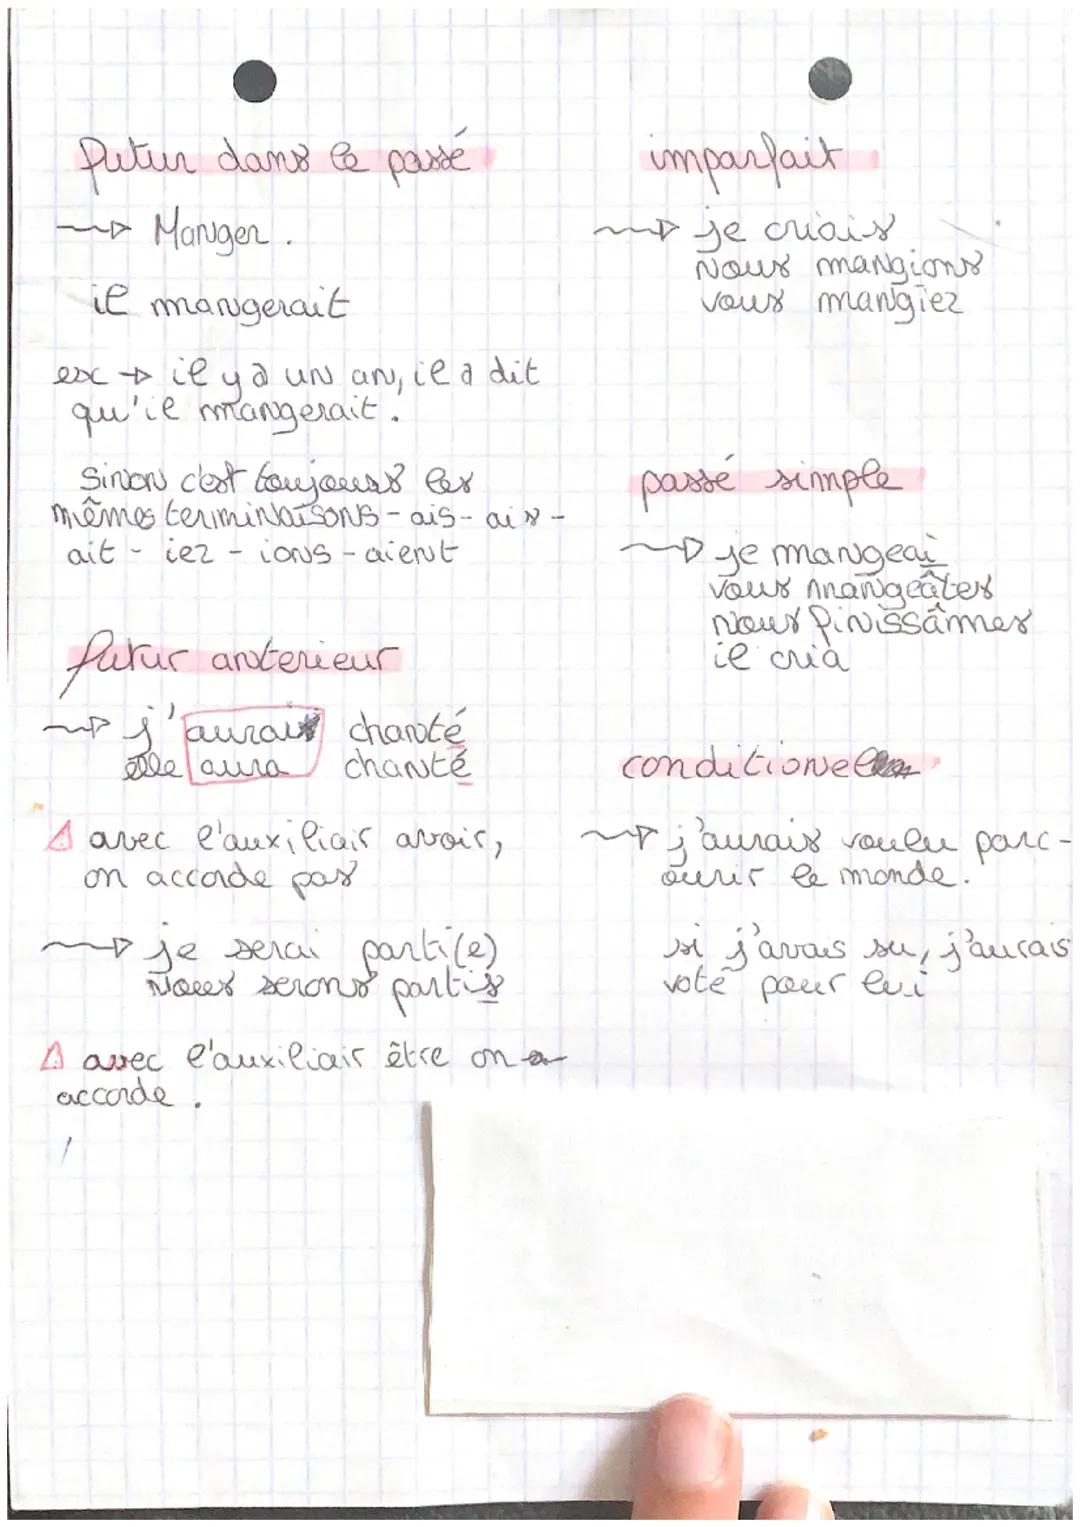 futur dans le passé
~~> Manger.
il mangerait
ex -> il y a un an, il a dit
qu'il mangerait.
Sinon c'est toujours les
mêmes terminaisons - ais - ais -
ait - iez - ions - aient
futur anterieur
~~> j'aurai chanté
elle aura chanté
⚠ avec l'auxiliair avoir,
on accorde pas
~~> je serai parti(e)
Nous serons partis
⚠ avec l'auxiliair être on
accorde.
imparfait
~~> je criais
Nous mangions
vous mangiez
passé simple
~~> je mangeai
vous mangeâtes
nous finissâmes
il cria
conditionel
~~> j'aurais voulu parc-
ourir le monde.
si j'avais su, j'aurais
voté pour lui